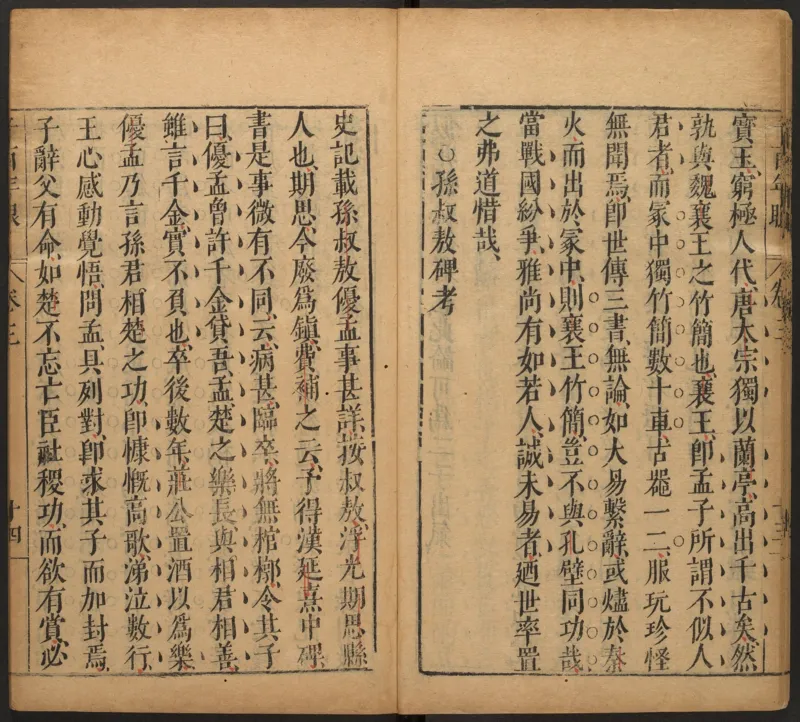 寶玉窮極人代唐太宗獨以蘭亭高出千古矣然
孰與魏襄王之竹簡也襄王卽孟子所謂不似人
君者而冢中獨竹簡數十車古器一二服玩珍怪
無聞焉卽世傳三書無論如大易繫辭或燼於秦
火而出於冢中則襄王竹簡豈不與孔壁同功哉
當戰國紛爭雅尚有如若人誠未易者廼世率置
之弗道惜哉
○孫叔敖碑考
史記載孫叔敖優孟事甚詳按叔敖浮光期思縣
人也期思今廢爲鎮費補之云予得漢延熹中碑
書是事微有不同云病甚臨卒將無棺槨令其子
曰優孟曾許千金貸吾孟楚之樂長與相君相善
雖言千金實不負也卒後數年莊公置酒以爲樂
優孟乃言孫君相楚之功卽慷慨高歌涕泣數行
王心感動覺悟問孟具列對卽求其子而加封焉
子辭父有命如楚不忘亡臣社稷功而欲有賞必
卷三
十四